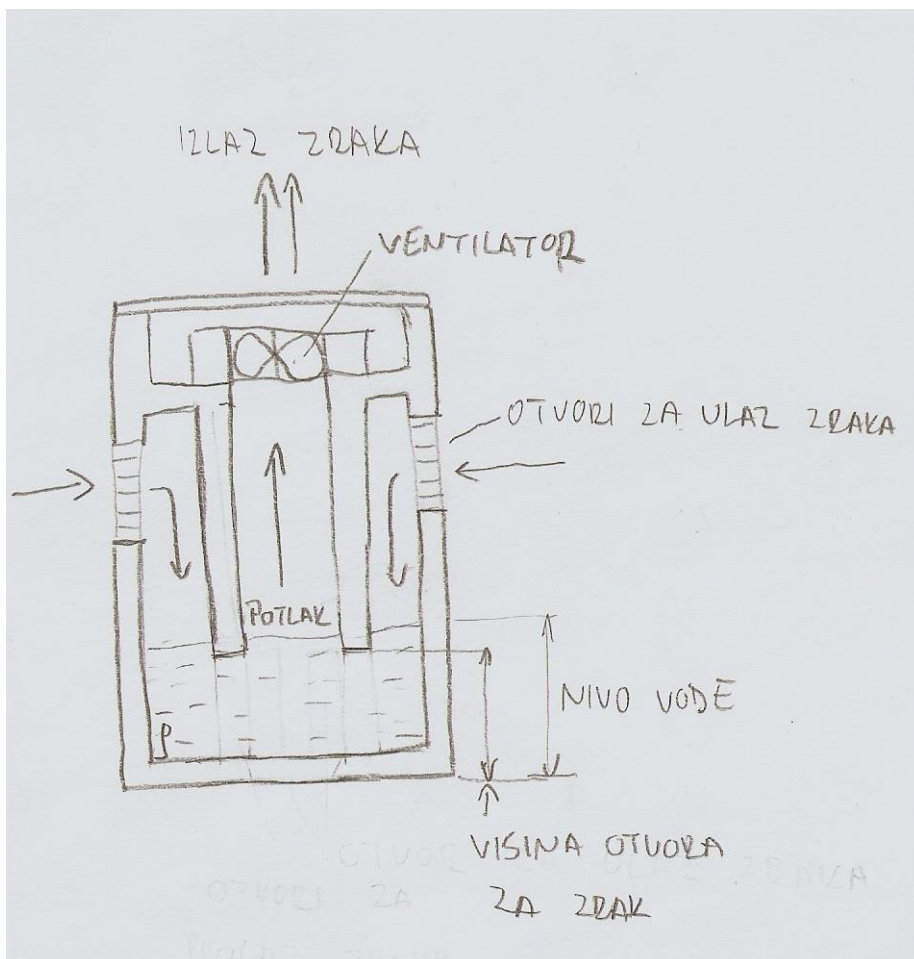 IZLAZ ZRAKA
VENTILATOR
OTVORI ZA ULAZ ZRAKA
POTLAK
NIVO VODE
ρ
VISINA OTVORA
ZA ZRAK
OTVORI ZA